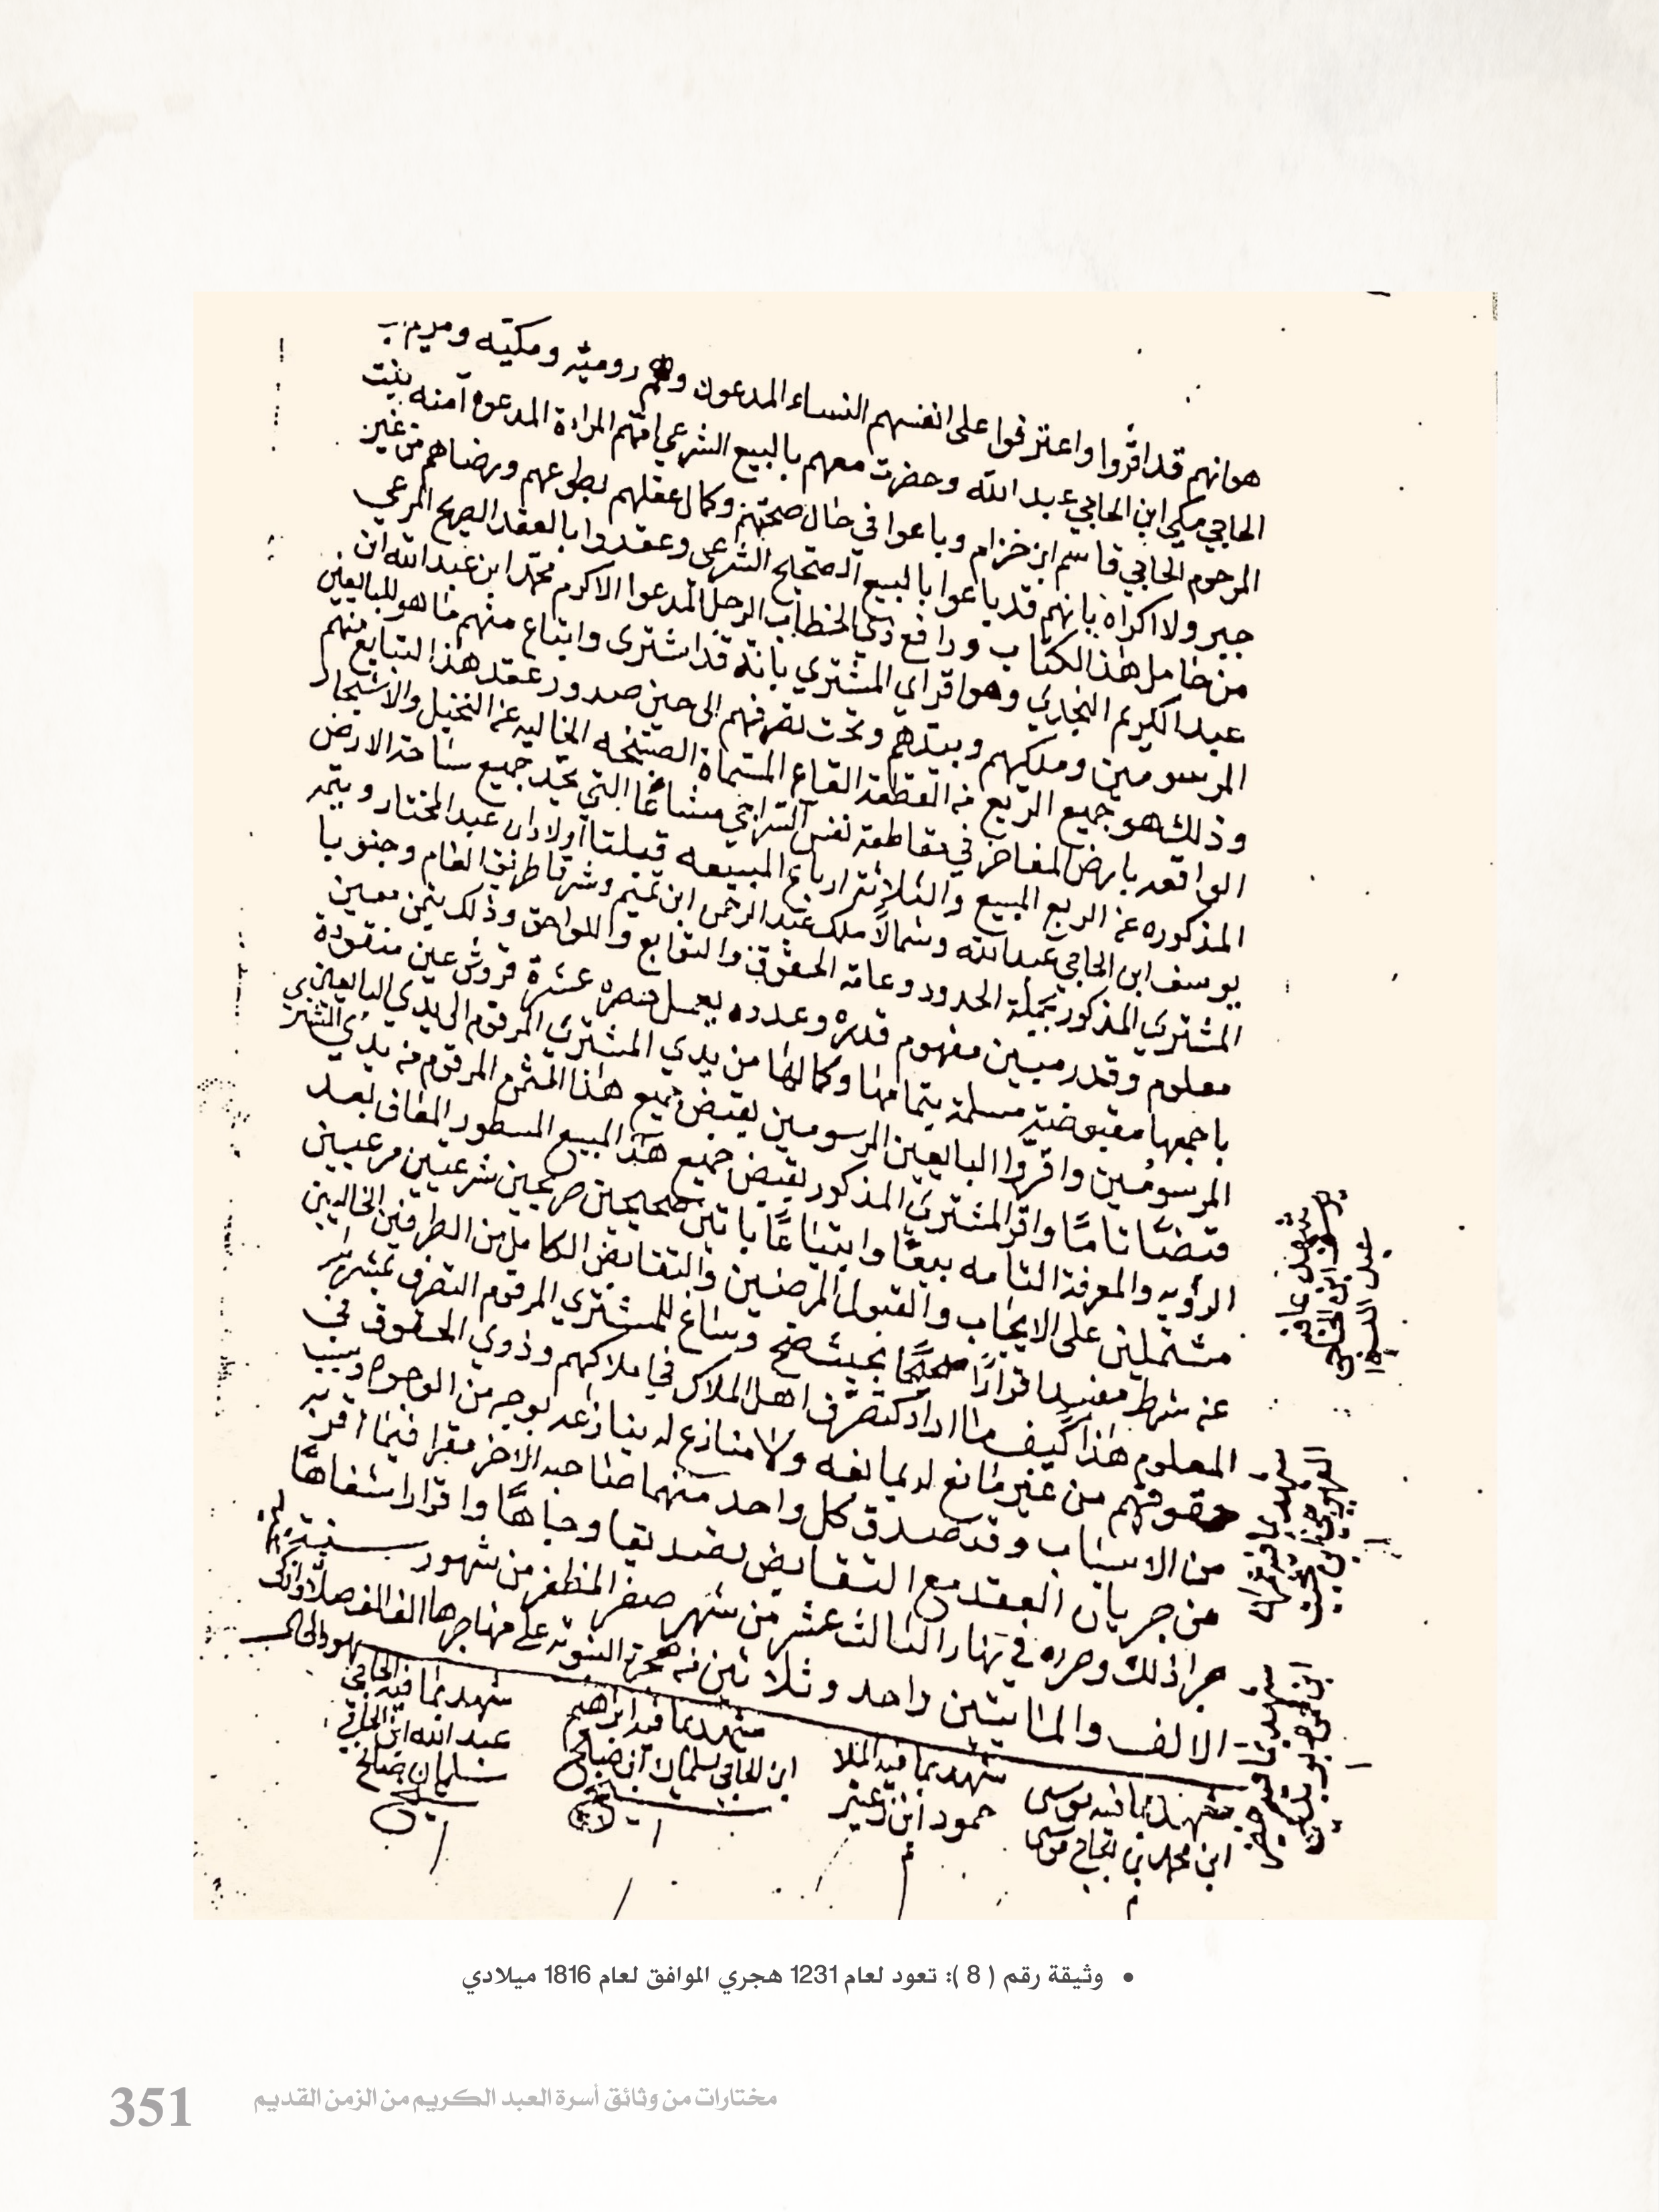 هوانهم قد اقروا واعترفوا على انفسهم النساء المدعون وهم روميه ومكيه ومريم
الحاجي مكي ابن الحاجي عبد الله وحضرت معهم بالبيع الشرعي امهم المراءة المدعوه آمنه بنت
المرحوم الحاجي قاسم ابن خزام وباعوا في حال صحتهم وكمال عقلهم بطوعهم ورضاهم من غير
جبر ولا اكراه بانهم قد باعوا بالبيع الصحيح الشرعي وعقدوا بالعقد الصريح المرعي
من حامل هذا الكتاب ورافع ذي الخطاب الرجل المدعوا الاكرم محمد ابن عبد الله ابن
عبد الكريم النجاري وهو اقر اي المشتري بانه قد اشترى وابتاع منهم ما هو للبايعين
المرسومين وملكهم وبيدهم وتحت تصرفهم الى حين صدور عقد هذا التبايع منهم
وذلك هو جميع الربع من القطعة القاع المسماة الخاليه عن النخيل والاشجار
الواقعه بارض في مقاطعة نفس مشاعا التي يحد جميع ساحة الارض
المذكوره عن الربع المبيع والثلاثة ارباع المبيعه قبلتا اولاد ابن عبد المختار ويتمه
يوسف ابن الحاجي عبد الله وشمالا ملك عبد الرحمن ابن تميم وشرقا طريق العام وجنوبا
المشتري المذكور بجملة الحدود وعامة الحقوق والتوابع واللواحق وذلك بثمن معين
معلوم وقدر مبين مفهوم قدره وعدده عشرة قروش عين منقودة
باجمعها مقبوضة مسلمة بتمامها وكمالها من يدي المشتري المرقوم الى يدي البايعين
المرسومين واقروا البايعين المرسومين بقبض جميع هذا الثمن المرقوم من يدي المشتري
قبضا تاما واقر المشتري المذكور بقبض جميع هذا المبيع المسطور بعد
الرؤيه والمعرفة التامه بيعا وابتياعا باتين صحيحين صريحين شرعيين مرعيين
مشتملين على الايجاب والقبول المرضيين والتقابض الكامل من الطرفين الخاليين
عن شرط مفيدا قرارا صحيحا بحيث صح وساغ للمشتري المرقوم التصرف بمشراه
المعلوم هذا كيف ما اراد كتصرف اهل الملاك في املاكهم وذوي الحقوق في
حقوقهم من غير مانع له يمانعه ولا منازع له ينازعه بوجه من الوجوه وسبب
من الاسباب وقد صدق كل واحد منهما صاحبه الاخر مقرا فيما اقر به
من جريان العقد مع التقابض تصديقا وجاها واقرارا شفاها
جرا ذلك وحرره في نهار الثالث عشر من شهر صفر المظفر من شهور سنة
الالف والمائتين واحد وثلاثين من هجرة النبوية على مهاجرها الف الف صلاة
شهد بما فيه موسى
ابن محمد بن الحاجي موسى
شهد بما فيه الملا
حمود ابن زعير
شهد بما فيه ابراهيم
ابن الحاجي سلمان ابن صالح
شهد بما فيه الحاجي
عبد الله ابن الحاجي
سلمان صالح
وثيقة رقم ( 8 ): تعود لعام 1231 هجري الموافق لعام 1816 ميلادي
351 مختارات من وثائق أسرة العبد الكريم من الزمن القديم